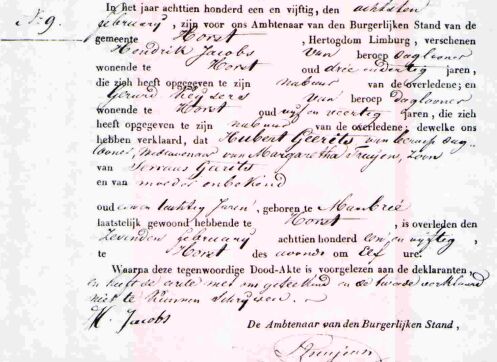 In het jaar achttien honderd een en vijftig, den achtsten
N.o 9. february, zijn voor ons Ambtenaar van den Burgerlijken Stand van de
gemeente Horst, Hertogdom Limburg, verschenen
Hendrik Jacobs van beroep daglooner
wonende te Horst oud drie en dertig jaren,
die zich heeft opgegeven te zijn nabuur van de overledene; en
Gerard van beroep Daglooner
wonende te Horst oud vijf en veertig jaren, die zich
heeft opgegeven te zijn nabuur van de overledene; dewelke ons
hebben verklaard, dat Hubert Geerits van beroep dag-
looner, weduwenaar van Margaretha Frayen, zoon
van Geerits
en van moeder onbekend
oud een en tachtig Jaren, geboren te Maasbree
laatstelijk gewoond hebbende te Horst, is overleden den
zevenden february achttien honderd een en vijftig,
te Horst des avonds om Elf ure.
Waarna deze tegenwoordige Dood-Akte is voorgelezen aan de deklaranten,
en heeft de eerste met ons geteekend en de tweede verklaard
niet te kunnen Schrijven.
H. Jacobs De Ambtenaar van den Burgerlijken Stand,